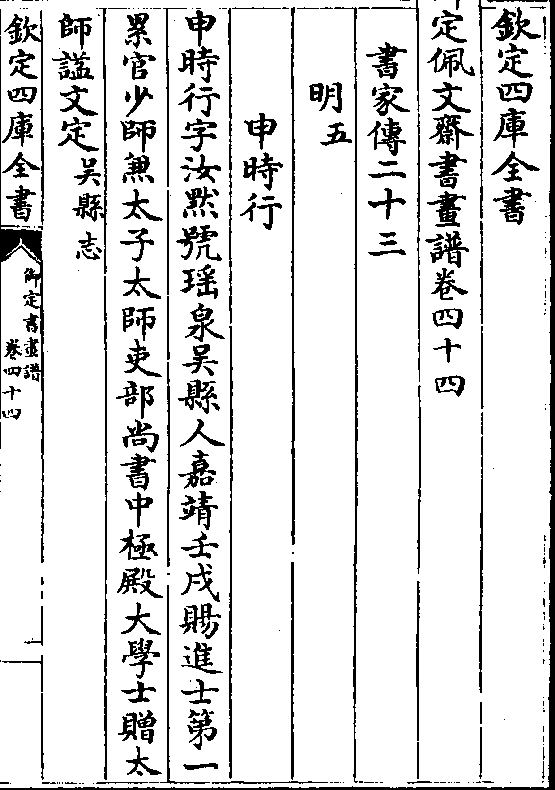 欽定四庫全書
定佩文齋書畫譜卷四十四
書家傳二十三
明五
申時行
申時行字汝黙號瑶泉吳縣人嘉靖壬戌賜進士第一
累官少師兼太子太師吏部尚書中極殿大學士贈太
師諡文定吳縣志
欽定四庫全書
御定書畫譜
卷四十四
一